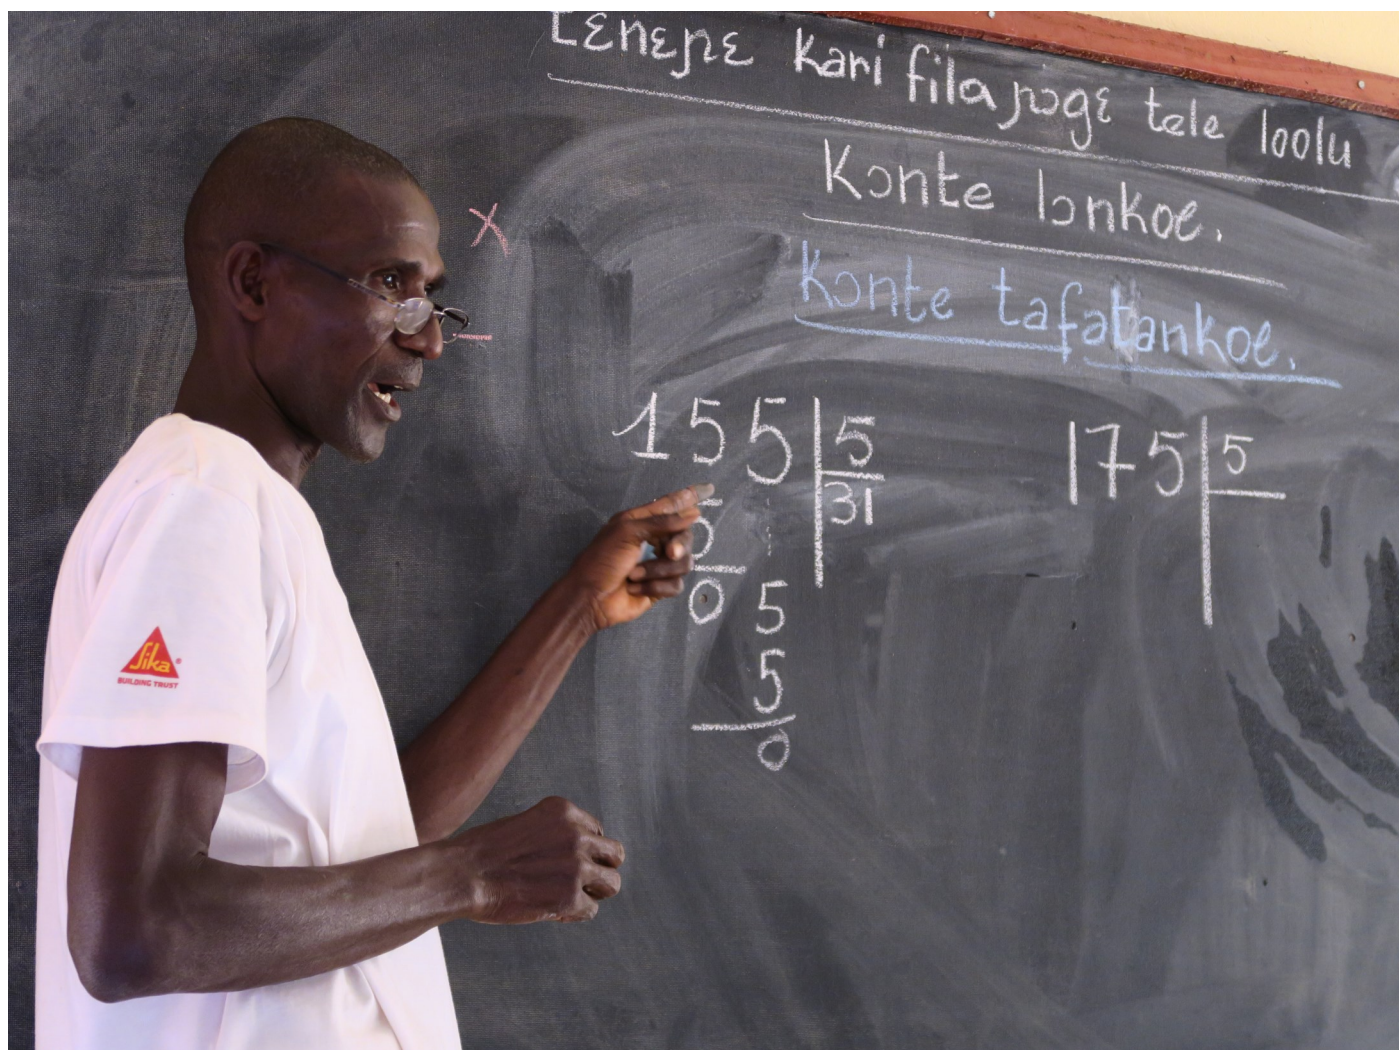 Tɛnɛɲɛ kari fila ɲɔgɛ tele loolu
Kɔnte lɔnkoe.
Kɔnte tafatankoe.
X
155 | 5
5 31
0 5
5
0
175 | 5
Sika®
BUILDING TRUST